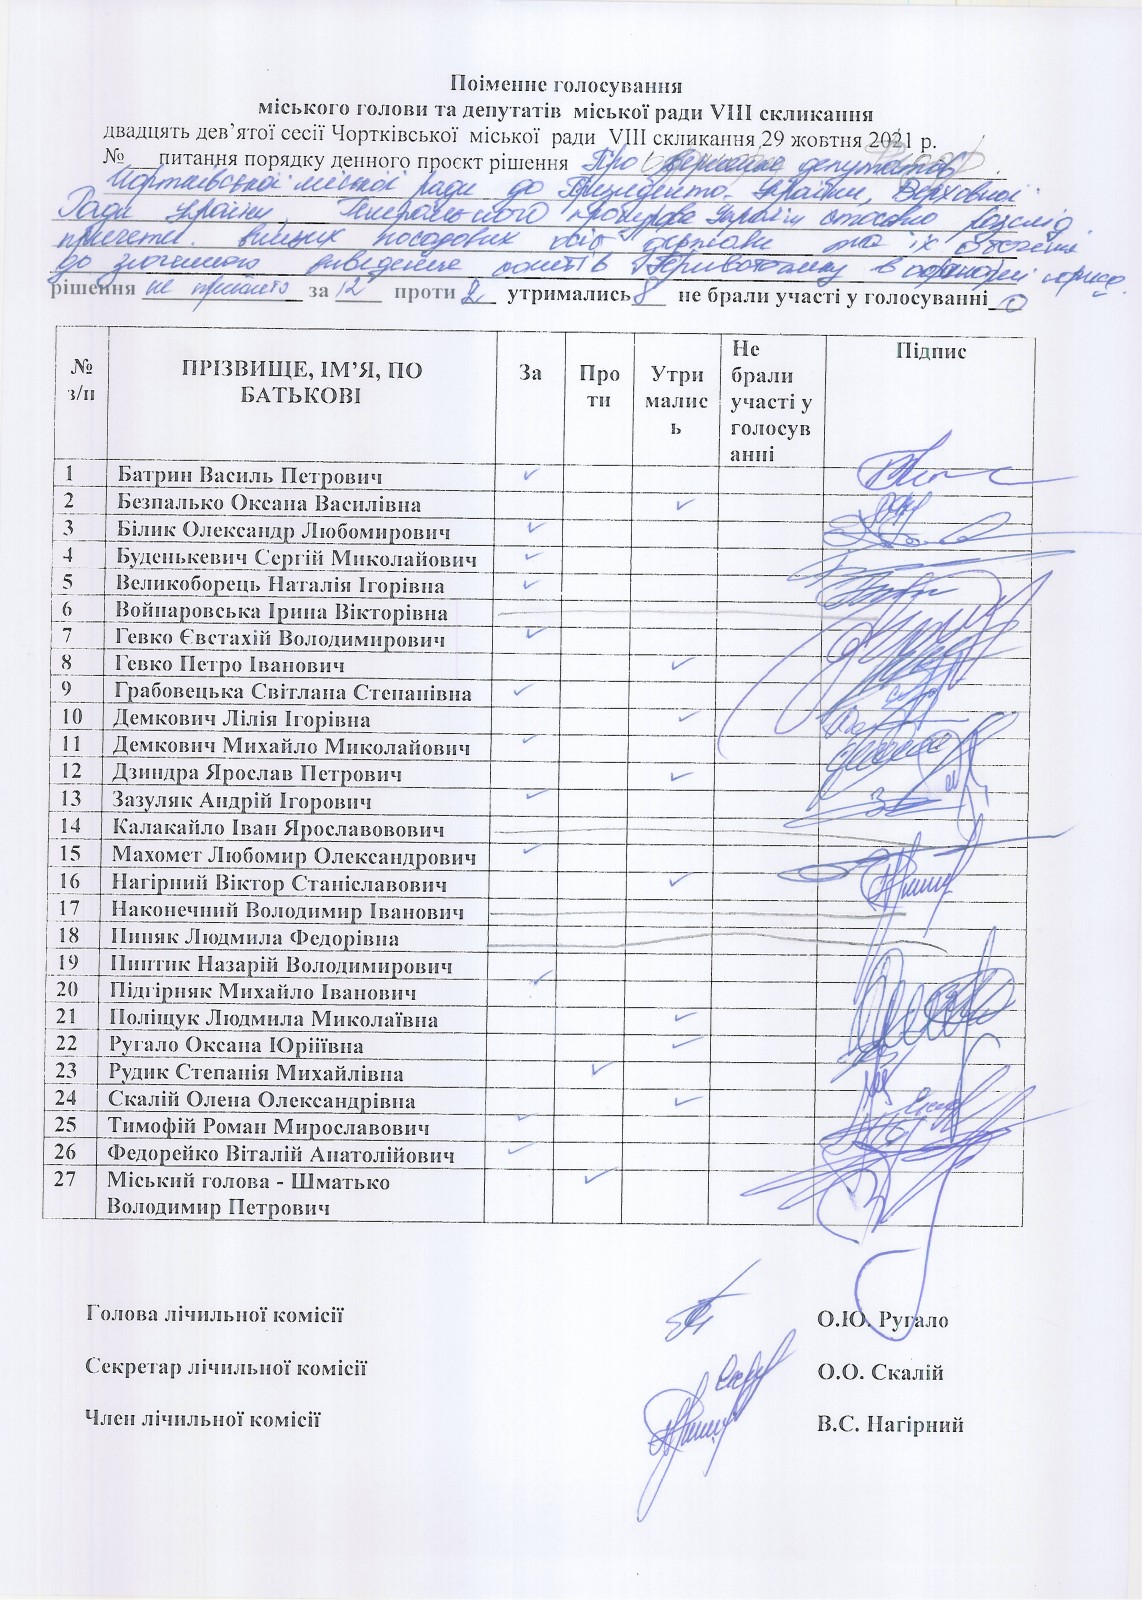 Поіменне голосування
міського голови та депутатів міської ради VIII скликання
двадцять дев’ятої сесії Чортківської міської ради VIII скликання 29 жовтня 2021 р.
№ питання порядку денного проєкт рішення Про звернення депутатів
Чортківської міської ради до Президента України, Верховної
Ради України, Генерального прокурора України стосовно
вищих посадових осіб держави та їх
до злочинного
рішення не прийнято за 12 проти 2 утримались 8 не брали участі у голосуванні 0
№ з/п ПРІЗВИЩЕ, ІМ’Я, ПО БАТЬКОВІ За Про ти Утри малис ь Не брали участі у голосув анні Підпис
1 Батрин Василь Петрович ✓
2 Безпалько Оксана Василівна ✓
3 Білик Олександр Любомирович ✓
4 Буденькевич Сергій Миколайович ✓
5 Великоборець Наталія Ігорівна ✓
6 Войнаровська Ірина Вікторівна
7 Гевко Євстахій Володимирович ✓
8 Гевко Петро Іванович ✓
9 Грабовецька Світлана Степанівна ✓
10 Демкович Лілія Ігорівна ✓
11 Демкович Михайло Миколайович ✓
12 Дзиндра Ярослав Петрович ✓
13 Зазуляк Андрій Ігорович ✓
14 Калакайло Іван Ярославовович
15 Махомет Любомир Олександрович ✓
16 Нагірний Віктор Станіславович ✓
17 Наконечний Володимир Іванович
18 Пиняк Людмила Федорівна
19 Пинтик Назарій Володимирович
20 Підгірняк Михайло Іванович ✓
21 Поліщук Людмила Миколаївна ✓
22 Ругало Оксана Юріїївна ✓
23 Рудик Степанія Михайлівна ✓
24 Скалій Олена Олександрівна ✓
25 Тимофій Роман Мирославович ✓
26 Федорейко Віталій Анатолійович ✓
27 Міський голова - Шматько ✓
Володимир Петрович
Голова лічильної комісії О.Ю. Ругало
Секретар лічильної комісії О.О. Скалій
Член лічильної комісії В.С. Нагірний